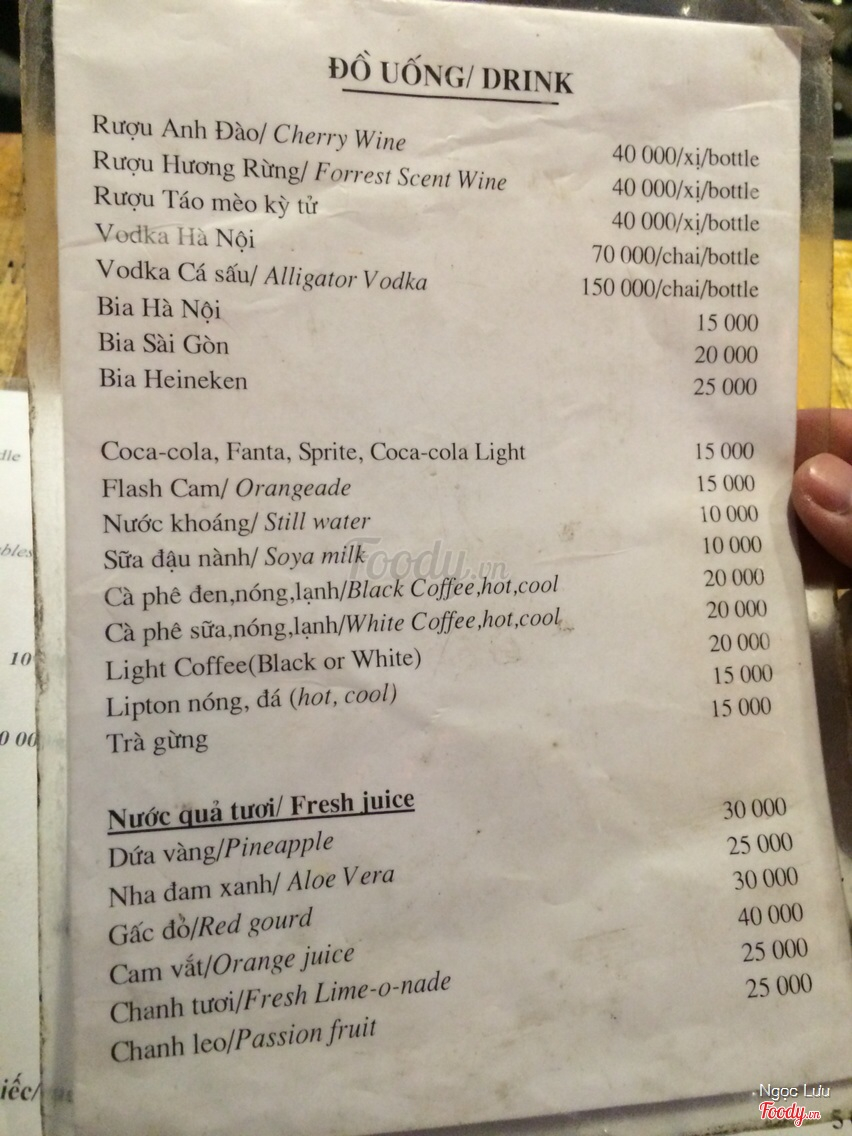 ĐỒ UỐNG/ DRINK
Rượu Anh Đào/ Cherry Wine 40 000/xị/bottle
Rượu Hương Rừng/ Forrest Scent Wine 40 000/xị/bottle
Rượu Táo mèo kỳ tử 40 000/xị/bottle
Vodka Hà Nội 70 000/chai/bottle
Vodka Cá sấu/ Alligator Vodka 150 000/chai/bottle
Bia Hà Nội 15 000
Bia Sài Gòn 20 000
Bia Heineken 25 000
Coca-cola, Fanta, Sprite, Coca-cola Light 15 000
Flash Cam/ Orangeade 15 000
Nước khoáng/ Still water 10 000
Sữa đậu nành/ Soya milk 10 000
Cà phê đen,nóng,lạnh/Black Coffee,hot,cool 20 000
Cà phê sữa,nóng,lạnh/White Coffee,hot,cool 20 000
Light Coffee(Black or White) 20 000
Lipton nóng, đá (hot, cool) 15 000
Trà gừng 15 000
Nước quả tươi/ Fresh juice
Dứa vàng/Pineapple 30 000
Nha đam xanh/ Aloe Vera 25 000
Gấc đỏ/Red gourd 30 000
Cam vắt/Orange juice 40 000
Chanh tươi/Fresh Lime-o-nade 25 000
Chanh leo/Passion fruit 25 000
Foody.vn
10
0 00
iếc/
Ngọc Lưu
Foody.vn